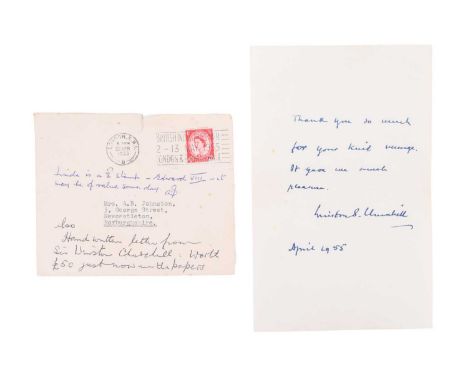 LONDON. S.W.
1955
BRITISH IN
2-13
LONDON &
Inside is a ½ᵈ Stamp - Edward VIII - it
may be of value some day.
Mrs. A.B. Johnston,
George Street,
Newcastleton,
Roxburghshire.
Also
Handwritten letter from
Sir Winston Churchill. Worth
£50 just now in the papers
Thank you so much
for your kind message.
It gave me much
pleasure.
Winston S. Churchill
April 1955